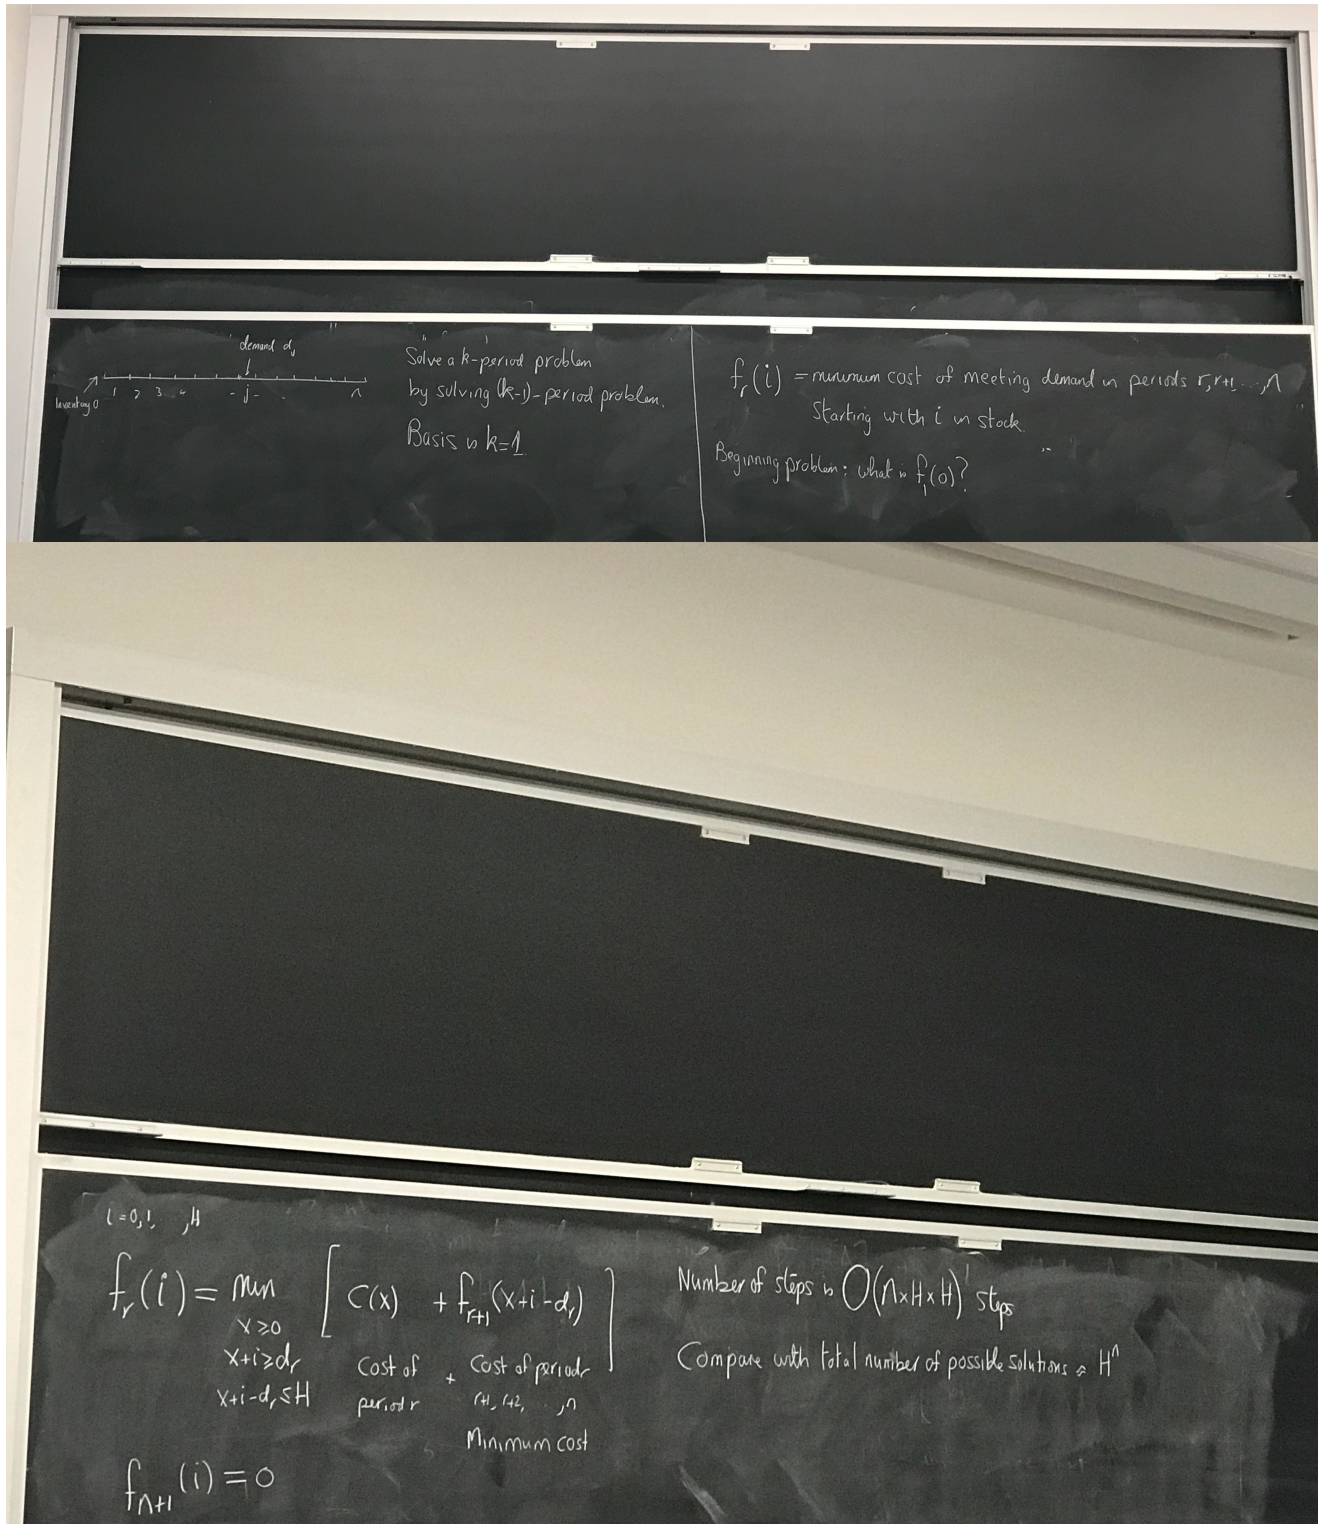 demand dj
1 2 3 4 - j - n
Inventory 0
Solve a k-period problem
by solving (k-1)-period problem.
Basis is k=1
fr(i) = minimum cost of meeting demand in periods r, r+1, ..., n
Starting with i in stock
Beginning problem: what is f1(0)?
i=0,1, ,H
fr(i) = min [ C(x) + fr+1(x+i-dr) ]
x≥0
x+i≥dr
x+i-dr≤H
cost of period r + Cost of periods r+1, r+2, ..., n
Minimum cost
fn+1(i) = 0
Number of steps is O(n×H×H) steps
Compare with total number of possible solutions ≈ H^n